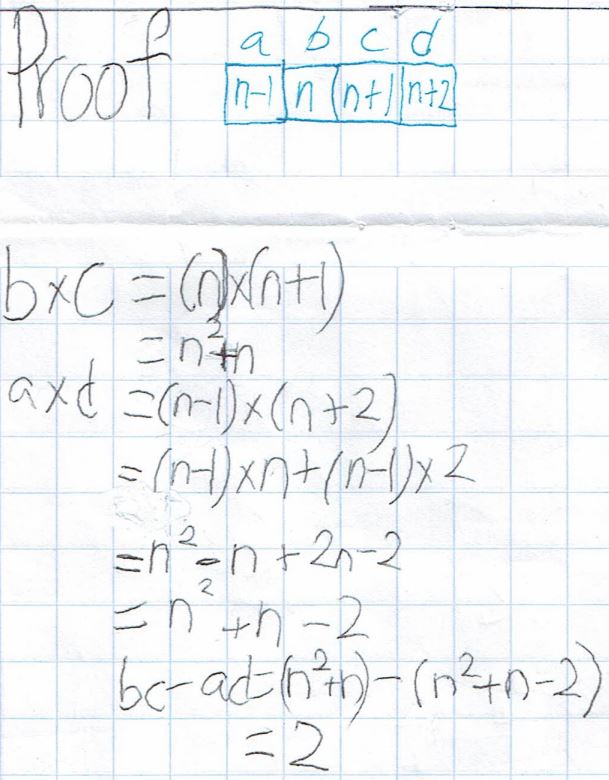 Proof
a b c d
n-1 n n+1 n+2
b×c = (n)×(n+1)
= n²+n
a×d = (n-1)×(n+2)
= (n-1)×n+(n-1)×2
= n²-n+2n-2
= n²+n-2
bc-ad=(n²+n)-(n²+n-2)
= 2